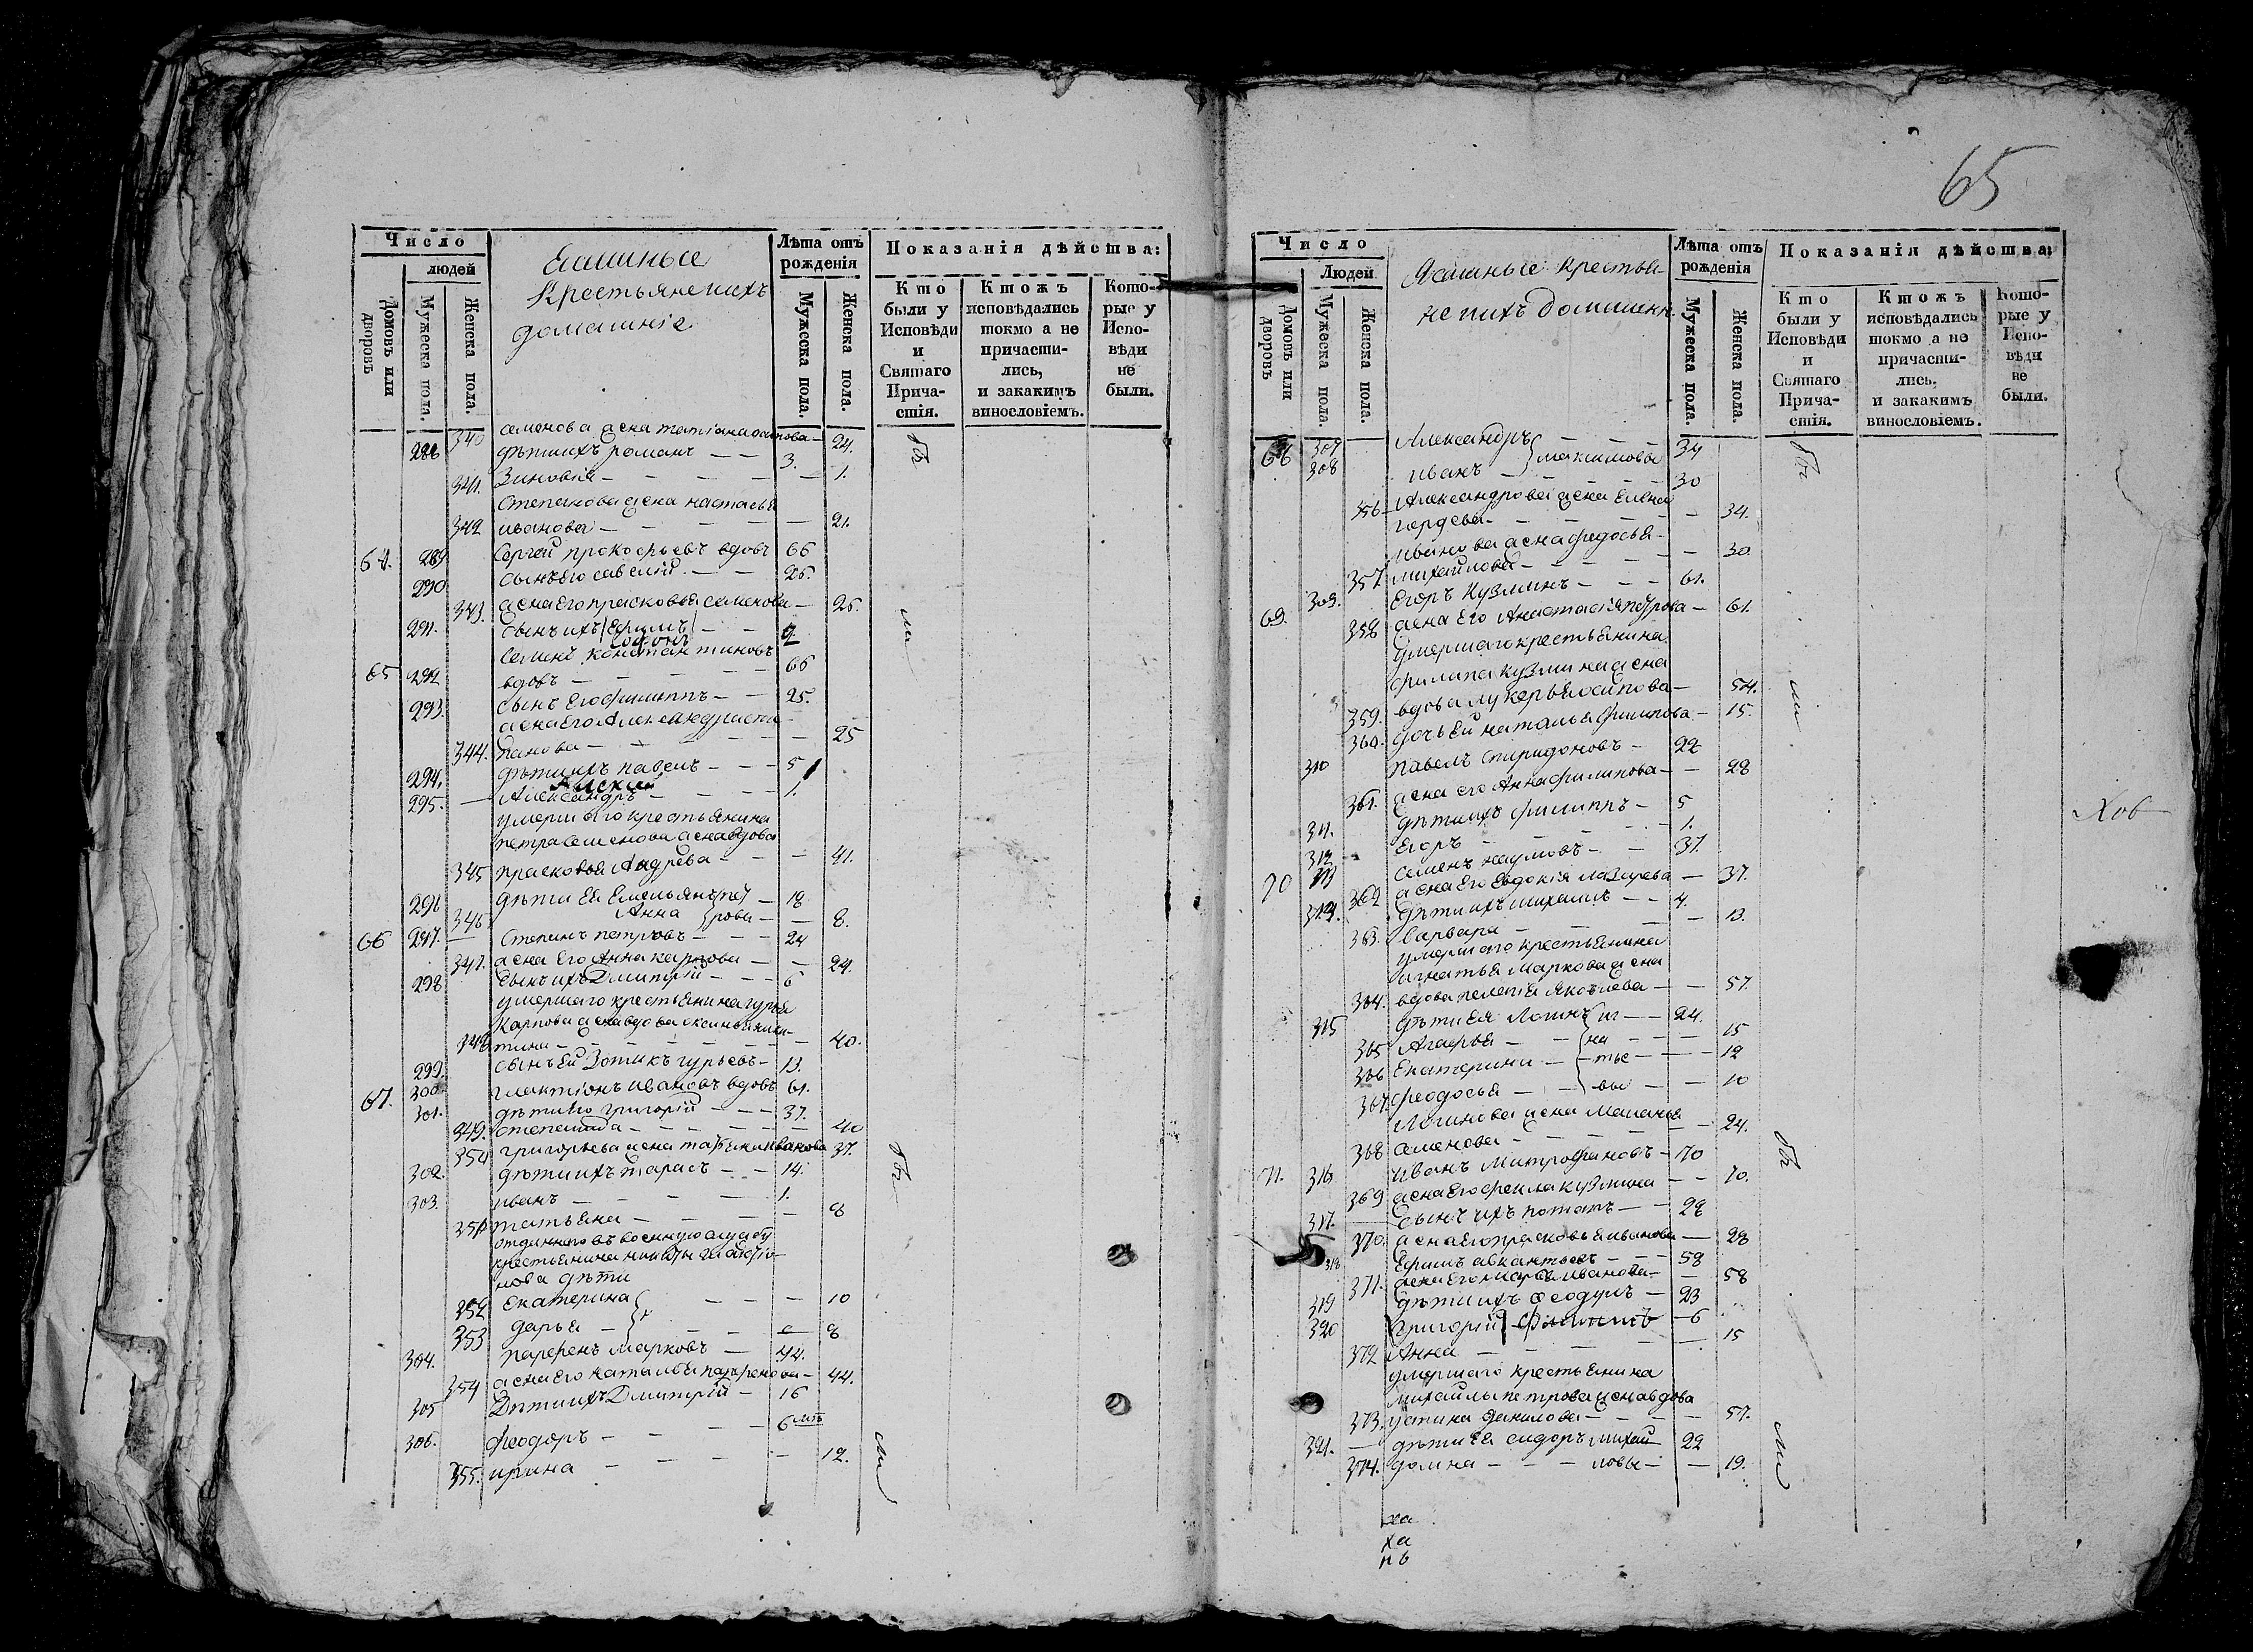 Число
людей
Домовъ или дворовъ
Мужеска пола.
Женска пола.
Ясашные
Крестьяне и ихъ
домашнiе
Лѣта отъ рожденiя
Мужеска пола.
Женска пола.
Показанiя дѣйства:
Кто были у Исповѣди и Святаго Причастiя.
Ктожъ исповѣдались токмо а не причастились, и закакимъ винословiемъ.
Которые у Исповѣди не были.
340 семенова жена татiана 24.
288 дѣти ихъ романъ — — 3.
341. Зиновiя — — — — — 1.
Степанова жена настасья
342 иванова — — — — — 21.
64. 289 Сергей прокофьевъ вдовъ 66
290 сынъ его савелiй — — 26.
343. жена его прасковья семенова — 26.
291. сынъ ихъ Ефимъ — —
Семенъ константиновъ
65 292 вдовъ — — — — 66
293. сынъ его филиппъ — — 25.
жена его Александра сте-
344. панова — — — — — 25
294. дѣти ихъ павелъ — — — 5
Алексѣй
295. — Александръ — — — — 1.
умершаго крестьянина
петра семенова жена вдова
345 прасковья Андрева — — — 41.
296 дѣти Ея Емельянъ пет — 18
346 Анна рови — — 8.
66 297. — Степанъ петровъ — — — 24
347. жена Его Анна карпова — — 24.
298 сынъ ихъ Дмитрiй — — — 6
умершаго крестьянина гурья
Карпова жена вдова аксинья ники-
348 тина — — — — — — 40.
299. сынъ Ей Зотикъ гурьевъ — 13.
67. 300 галактiонъ Ивановъ вдовъ 61.
301. дѣти его григорiй — — — 37.
349. степанида — — — — — — 40
350 григорьева жена татьяна иванова 37.
302. дѣти ихъ тарасъ — — 14.
303. иванъ — — — — 1.
351 татьяна — — — — — 8
отданнаго въ военную службу
крестьянина никиты галактiо-
нова дѣти
352 Екатерина — — — 10
353 дарья — — — — 8
304. парфенъ Марковъ — 44.
354 жена его наталья парфенова — 44.
305 Дѣти ихъ Дмитрiй — 16
306. феодоръ — — — — 6 лѣт
355. ирина — — — — — 12.
бы
ли
бы
ли
65
Число
Людей
Домовъ или дворовъ
Мужеска пола.
Женска пола.
Ясашные крестья-
не и ихъ домашнн.
Лѣта отъ рожденiя
Мужеска пола.
Женска пола.
Показанiя дѣйства:
Кто были у Исповѣди и Святаго Причастiя.
Ктожъ исповѣдались токмо а не причастились. и закакимъ винословiемъ.
Которые у Исповѣди не были.
68 307 Александръ — — — — 34
308 иванъ — максимовы 30
356 Александрова жена Елена
гордева — — — — — — 34.
иванова жена федосья —
357. михайлова — — — — — 30
69. 309. Егоръ Кузминъ — — — 61.
358 жена Его Анастасiя петрова — 61.
умершаго крестьянина
филипа кузмина жена
359. вдова лукерья осипова — 54.
360. дочь Ей наталья филипова — 15.
310 павелъ Спиридоновъ — 22
361. жена его Анна филипова — — 28
311. дѣти ихъ филиппъ — 5
312 Егоръ — — — — — 1.
70 313 семенъ наумовъ — — 37.
362 жена Его Евдокiя лазарева — 37.
314. дѣти ихъ михаилъ — — 4.
363. варвара — — — — — 13.
умершаго крестьянина
игнатья Маркова жена
364. вдова пелагiя яковлева — — 57.
315 дѣти Ея Логинъ иг — — 24.
365 Агафья — — на — — — 15
366 Екатерина — — тье — — — 12
367 феодосья — — вы — — 10
Логинова жена Маланья
368 семенова — — — — — — 24.
71. 316 Иванъ Митрофановъ — 70
369 жена Его фекла кузмина — — 70.
317. — сынъ ихъ потапъ — — 28
370. жена Его прасковья иванова — 28
318 Ефимъ — — — 58
371. жена Его марья иванова — — 58
319 дѣти ихъ феодулъ — 23
320 Григорiй Филиппъ — 6
372 Анна — — — — — — 15
умершаго крестьянина
михайлы петрова жена вдова
373. устина данилова — — — — — 57.
321. — дѣти Ея сидоръ михай 22
374. домна — — — ловы — — 19.
бы
ли
бы
ли
Хов
ха
ха
нъ